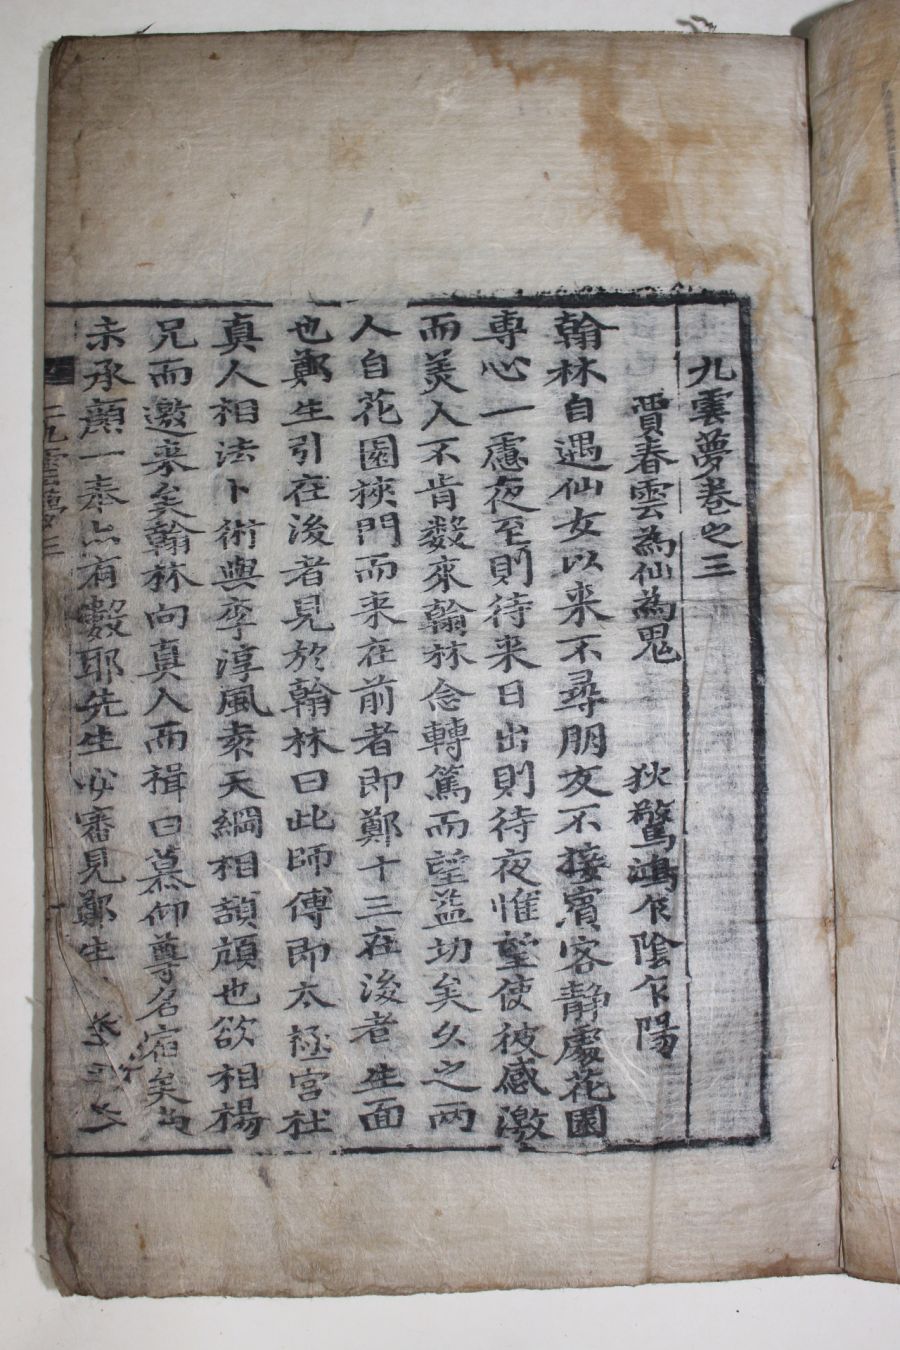 九雲夢卷之三
賈春雲為仙為鬼 狄驚鴻乍陰乍陽
翰林自遇仙女以来不尋朋友不接賓客靜處花園
專心一慮夜至則待来日出則待夜惟望使彼感激
而羙人不肯數來翰林念轉篤而望益切矣久之两
人自花園挾門而来在前者即鄭十三在後者生面
也鄭生引在後者見於翰林曰此師傅即太極宮杜
真人相法卜術與李淳風袁天綱相頡頏也欲相楊
兄而邀来矣翰林向真人而揖曰慕仰尊名宿矣尚
未承顔一奉亦有數耶先生必審見鄭生